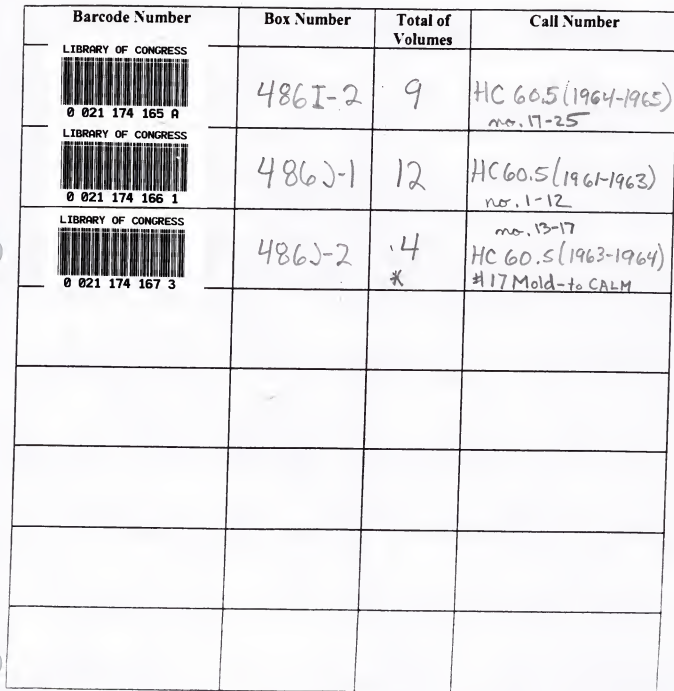 Barcode Number Box Number Total of Volumes Call Number
LIBRARY OF CONGRESS
0 021 174 165 A
486I-2
9
HC 60.5 (1964-1965)
no. 17-25
LIBRARY OF CONGRESS
0 021 174 166 1
486J-1
12
HC60.5 (1961-1963)
no. 1-12
LIBRARY OF CONGRESS
0 021 174 167 3
486J-2
4
*
no. 13-17
HC 60.5 (1963-1964)
#17 Mold-to CALM